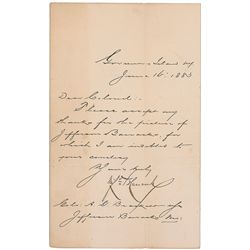 Governors Island NY
June 16th 1883
Dear Colonel:
Please accept my
thanks for the picture of
Jefferson Barracks, for
which I am indebted to
your courtesy
Yours truly
Col. A. G.
Jefferson Barracks Mo.